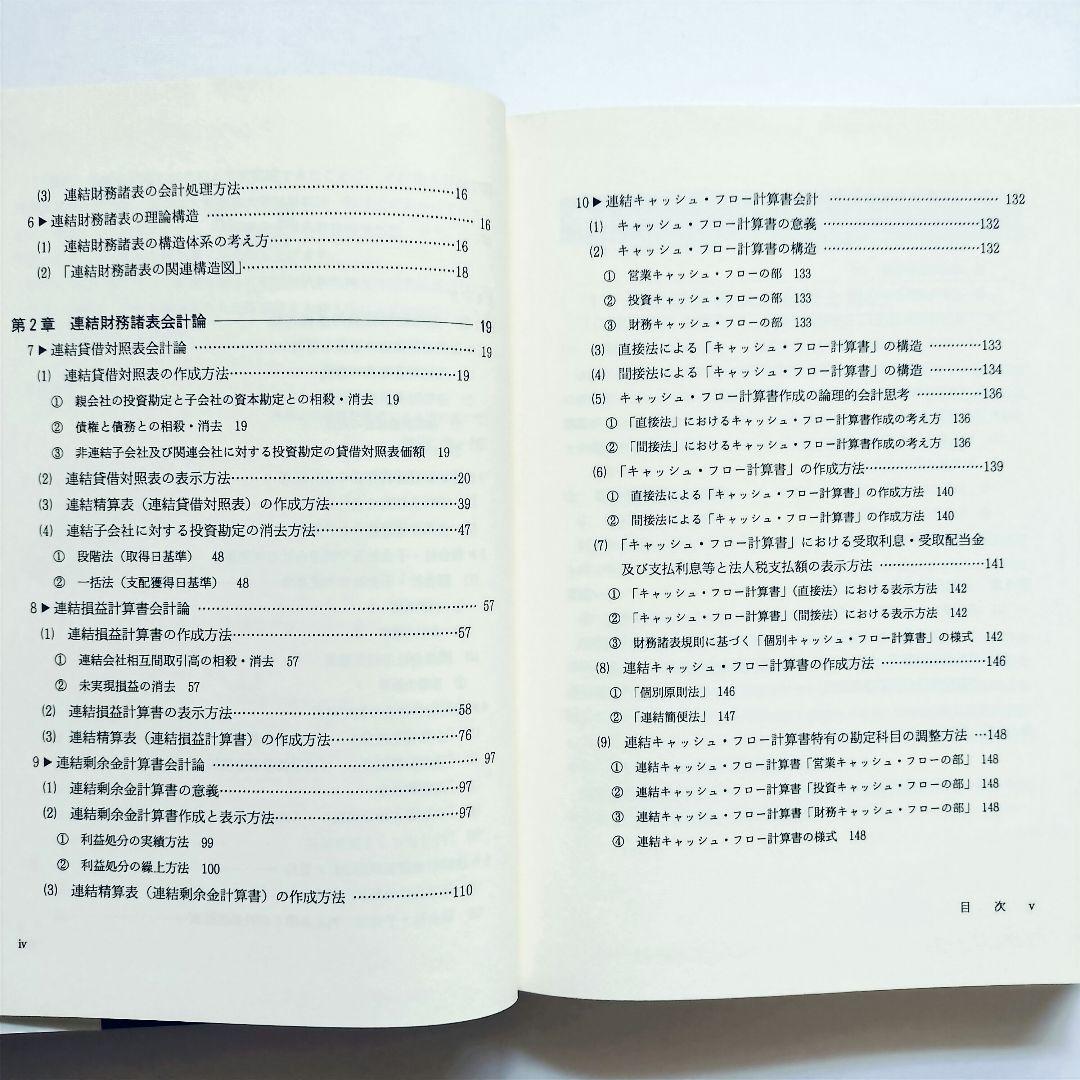 (3) 連結財務諸表の会計処理方法……………………………16
6▶連結財務諸表の理論構造 ……………………………………16
(1) 連結財務諸表の構造体系の考え方…………………………16
(2) 「連結財務諸表の関連構造図」……………………………18
第2章 連結財務諸表会計論 ――――――――――― 19
7▶連結貸借対照表会計論 ……………………………………… 19
(1) 連結貸借対照表の作成方法…………………………………19
① 親会社の投資勘定と子会社の資本勘定との相殺・消去 19
② 債権と債務との相殺・消去 19
③ 非連結子会社及び関連会社に対する投資勘定の貸借対照表価額 19
(2) 連結貸借対照表の表示方法…………………………………20
(3) 連結精算表（連結貸借対照表）の作成方法………………39
(4) 連結子会社に対する投資勘定の消去方法…………………47
① 段階法（取得日基準） 48
② 一括法（支配獲得日基準） 48
8▶連結損益計算書会計論 ……………………………………… 57
(1) 連結損益計算書の作成方法…………………………………57
① 連結会社相互間取引高の相殺・消去 57
② 未実現損益の消去 57
(2) 連結損益計算書の表示方法…………………………………58
(3) 連結精算表（連結損益計算書）の作成方法………………76
9▶連結剰余金計算書会計論 …………………………………… 97
(1) 連結剰余金計算書の意義……………………………………97
(2) 連結剰余金計算書作成と表示方法…………………………97
① 利益処分の実績方法 99
② 利益処分の繰上方法 100
(3) 連結精算表（連結剰余金計算書）の作成方法 ……………110
iv
10▶連結キャッシュ・フロー計算書会計 ……………………………… 132
(1) キャッシュ・フロー計算書の意義 …………………………132
(2) キャッシュ・フロー計算書の構造 …………………………132
① 営業キャッシュ・フローの部 133
② 投資キャッシュ・フローの部 133
③ 財務キャッシュ・フローの部 133
(3) 直接法による「キャッシュ・フロー計算書」の構造 …………133
(4) 間接法による「キャッシュ・フロー計算書」の構造 …………134
(5) キャッシュ・フロー計算書作成の論理的会計思考 ……………136
① 「直接法」におけるキャッシュ・フロー計算書作成の考え方 136
② 「間接法」におけるキャッシュ・フロー計算書作成の考え方 136
(6) 「キャッシュ・フロー計算書」の作成方法……………………139
① 直接法による「キャッシュ・フロー計算書」の作成方法 140
② 間接法による「キャッシュ・フロー計算書」の作成方法 140
(7) 「キャッシュ・フロー計算書」における受取利息・受取配当金
及び支払利息等と法人税支払額の表示方法 …………………141
① 「キャッシュ・フロー計算書」（直接法）における表示方法 142
② 「キャッシュ・フロー計算書」（間接法）における表示方法 142
③ 財務諸表規則に基づく「個別キャッシュ・フロー計算書」の様式 142
(8) 連結キャッシュ・フロー計算書の作成方法 …………………146
① 「個別原則法」 146
② 「連結簡便法」 147
(9) 連結キャッシュ・フロー計算書特有の勘定科目の調整方法 …148
① 連結キャッシュ・フロー計算書「営業キャッシュ・フローの部」 148
② 連結キャッシュ・フロー計算書「投資キャッシュ・フローの部」 148
③ 連結キャッシュ・フロー計算書「財務キャッシュ・フローの部」 148
④ 連結キャッシュ・フロー計算書の様式 148
目 次 v